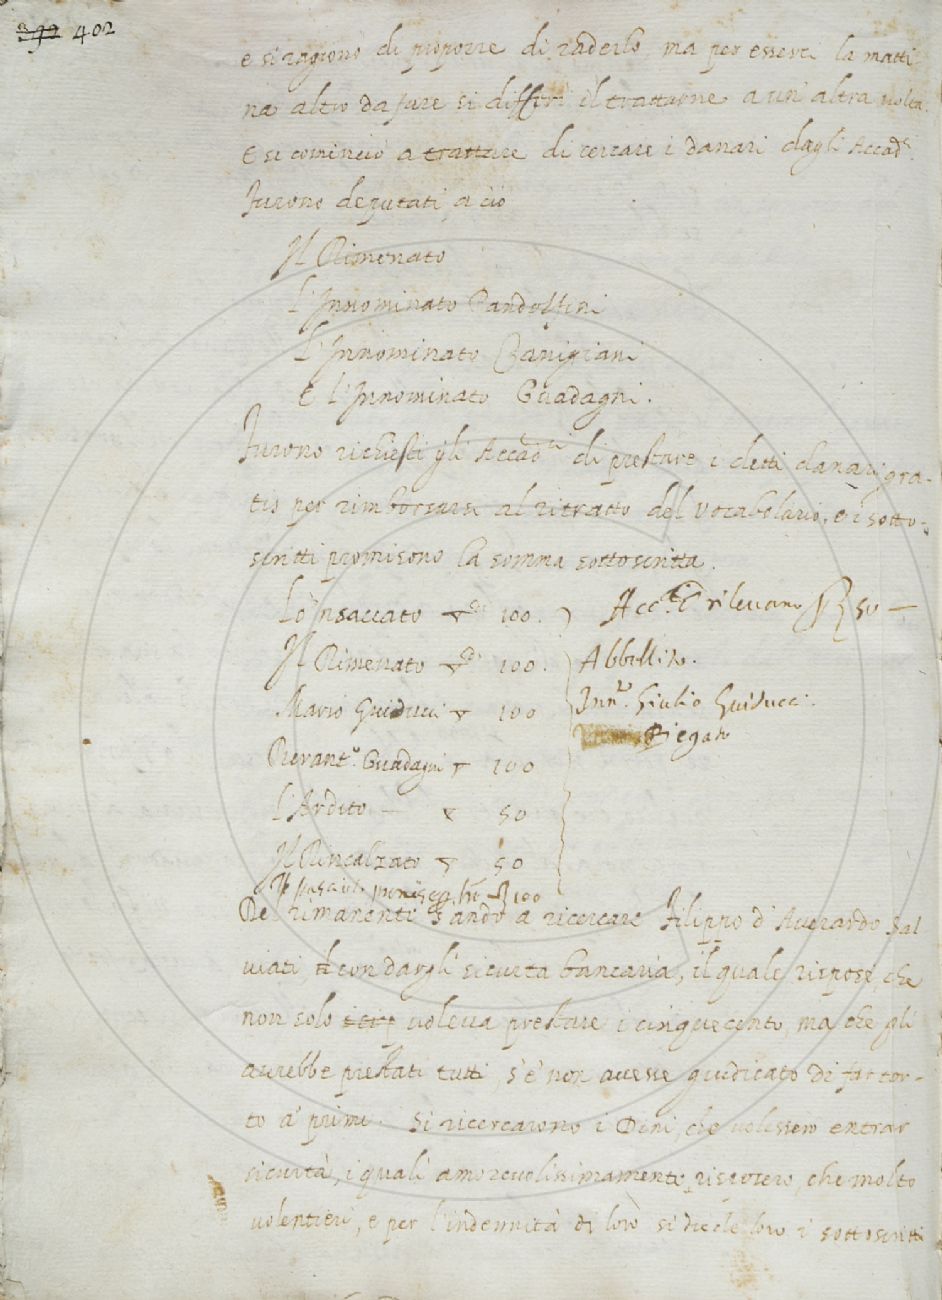 392 402
e si ragionò di proporre di raderlo, ma per essere la matti
na altro da fare si differì il trattarne a un' altra volta.
E si cominciò a trattare di cercare i danari dagli Accad.ci
Furono deputati a ciò
Il Rimenato
L'Innominato Pandolfini
L'Innominato Zanigiani
E l'Innominato Guadagni.
Furono richiesti gli Accad.ci di prestare i detti danari gra-
tis per rimborsarsi al ritratto del Vocabolario, e i sotto-
scritti promisono la somma sottoscritta.
Lo 'nsaccato 100.
Il Rimenato 100.
Mario Guiducci 100
Pierant.o Guadagni 100
L'Ardito — 50
Il Rincalzato 50
promise 100
rilevano 50 —
Abbellito.
Inn.to Giulio Guiducci.
Piegato
Del rimanente s'andò a ricercare Filippo d'Averardo Sal
viati con dargli sicurtà bancaria, il quale rispose, che
non solo voleva prestare i cinquecento, ma che gli
avrebbe prestati tutti, s'e' non avesse giudicato di far tor-
to a' primi. Si ricercarono i Dini, che volessero entrar
sicurtà, i quali amorevolissimamente risposero, che molto
volentieri, e per l'indennità di loro si diede loro i sottoscritti